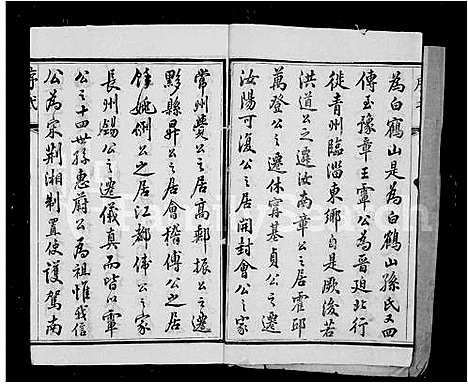 為白鶴山是為白鶴山孫氏又四
傳至豫章王覃公為晉廹北行
徙青州臨淄東鄉自是厥後若
洪道公之遷汝南章公之居霍邱
萬登公之遷休寧基貞公之遷
汝陽可復公之居開封會公之家
常州賛公之居高郵振公之遷
黟縣昇公之居會稽傅公之居
餘姚侀公之居江都俙公之家
長州鍚公之遷儀真而皆以覃
公之十四世孫惠蔚公為祖惟我信
公為宋荆湘制置使護駕南
序氏